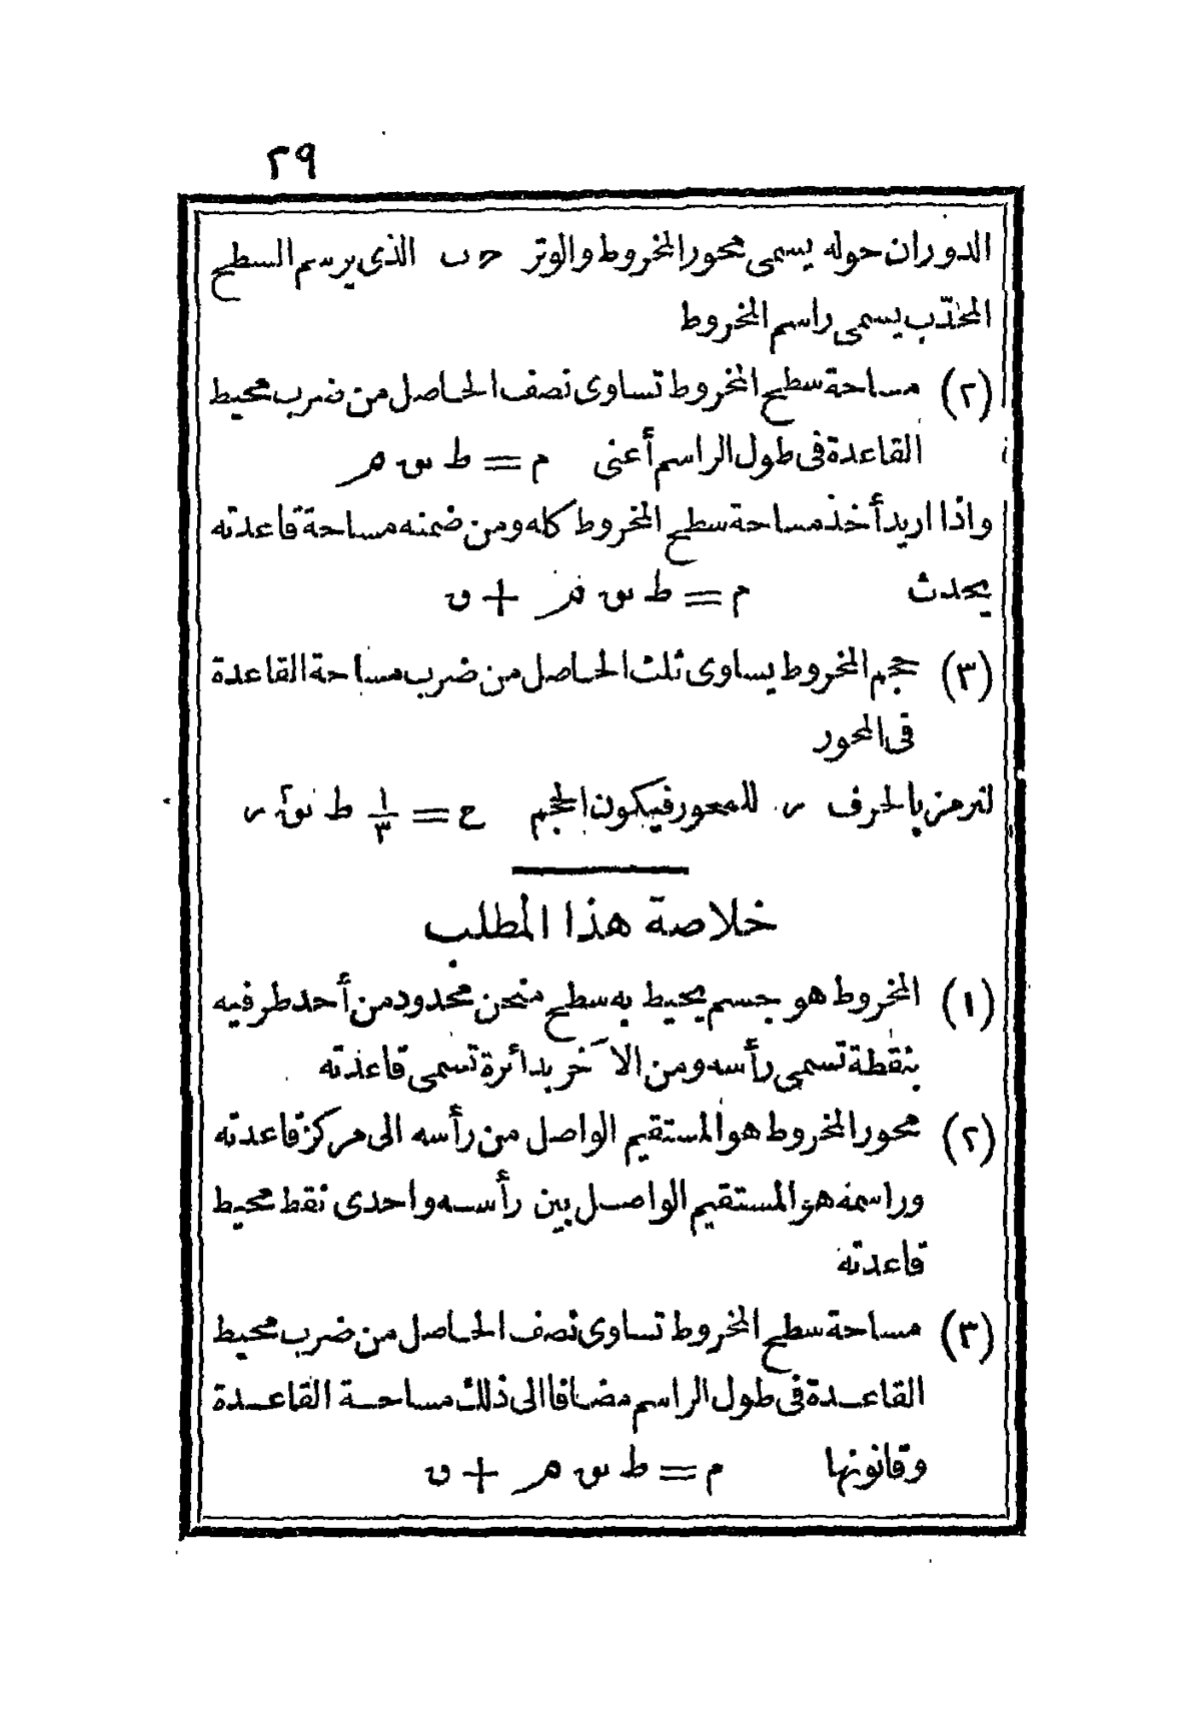 ٢٩
الدوران حوله يسمى محور المخروط والوتر حـ ب الذى يرسم السطح
المحدّب يسمى راسم المخروط
(٢) مساحة سطح المخروط تساوى نصف الحاصل من ضرب محيط
القاعدة فى طول الراسم أعنى م = ط س م
واذا اريد أخذ مساحة سطح المخروط كله ومن ضمنه مساحة قاعدته
يحدث م = ط س م + ق
(٣) حجم المخروط يساوى ثلث الحاصل من ضرب مساحة القاعدة
فى المحور
لنرمز بالحرف ر للمحور فيكون الحجم ح = ١/٣ ط س٢ ر
خلاصة هذا المطلب
(١) المخروط هو جسم يحيط به سطح منحن محدود من أحد طرفيه
بنقطة تسمى رأسه ومن الآخر بدائرة تسمى قاعدته
(٢) محور المخروط هو المستقيم الواصل من رأسه الى مركز قاعدته
وراسمه هو المستقيم الواصل بين رأسه واحدى نقط محيط
قاعدته
(٣) مساحة سطح المخروط تساوى نصف الحاصل من ضرب محيط
القاعدة فى طول الراسم مضافا الى ذلك مساحة القاعدة
وقانونها م = ط س م + ق